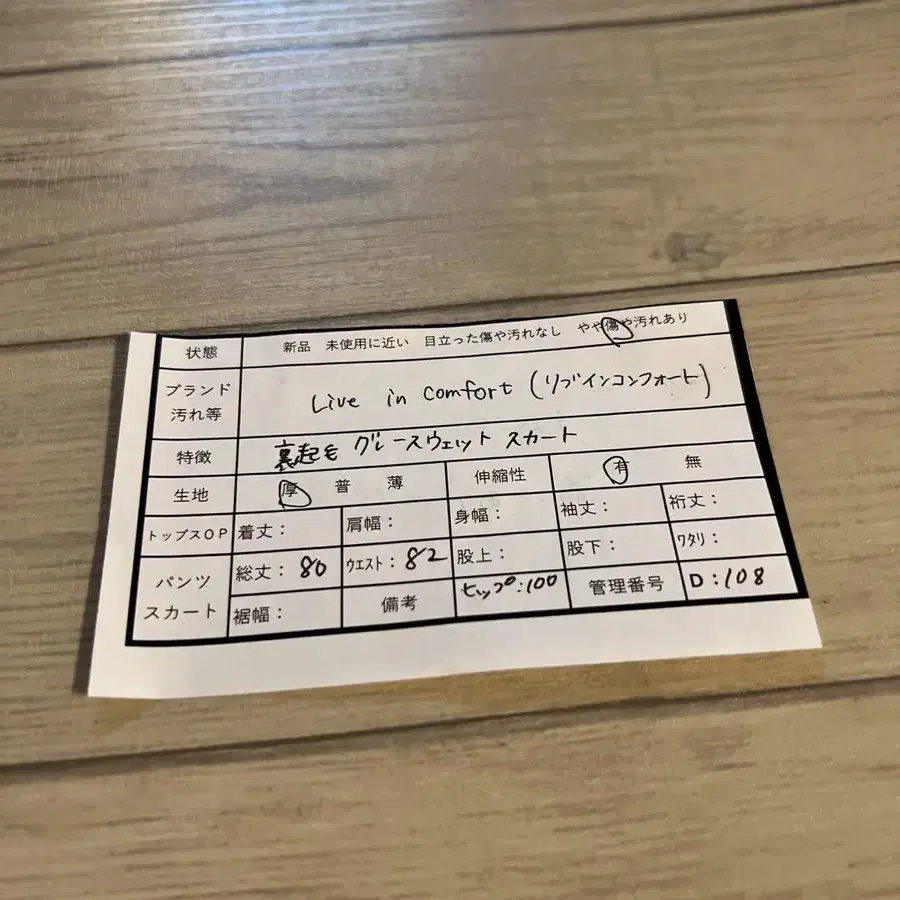 状態 新品 未使用に近い 目立った傷や汚れなし やや傷や汚れあり
ブランド 汚れ等 Live in comfort (リブインコンフォート)
特徴 裏起毛 グレースウェット スカート
生地 厚 普 薄 伸縮性 有 無
トップスOP 着丈: 肩幅: 身幅: 袖丈: 裄丈:
パンツ スカート 総丈: 80 ウエスト: 82 股上: 股下: ワタリ:
裾幅: 備考 ヒップ:100 管理番号 D:108